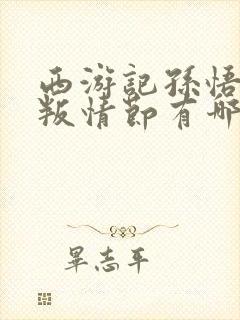 西游記孫悟
叛情節有哪
畢志平